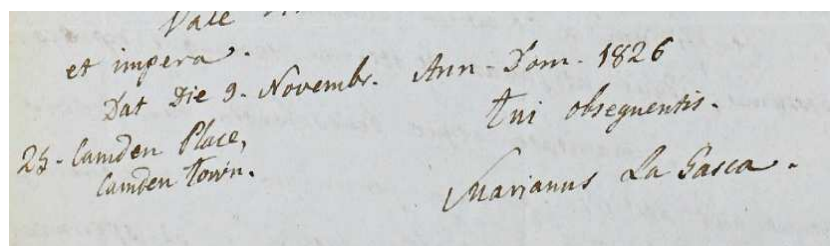 Vale
et impera.
Dat Die 9. Novembr. Ann. Dom. 1826
Tui obsequentis.
25. Camden Place,
Camden Town.
Marianus La Gasca.